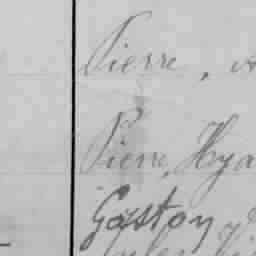 Pierre,
Pierre, Hya
Gaston